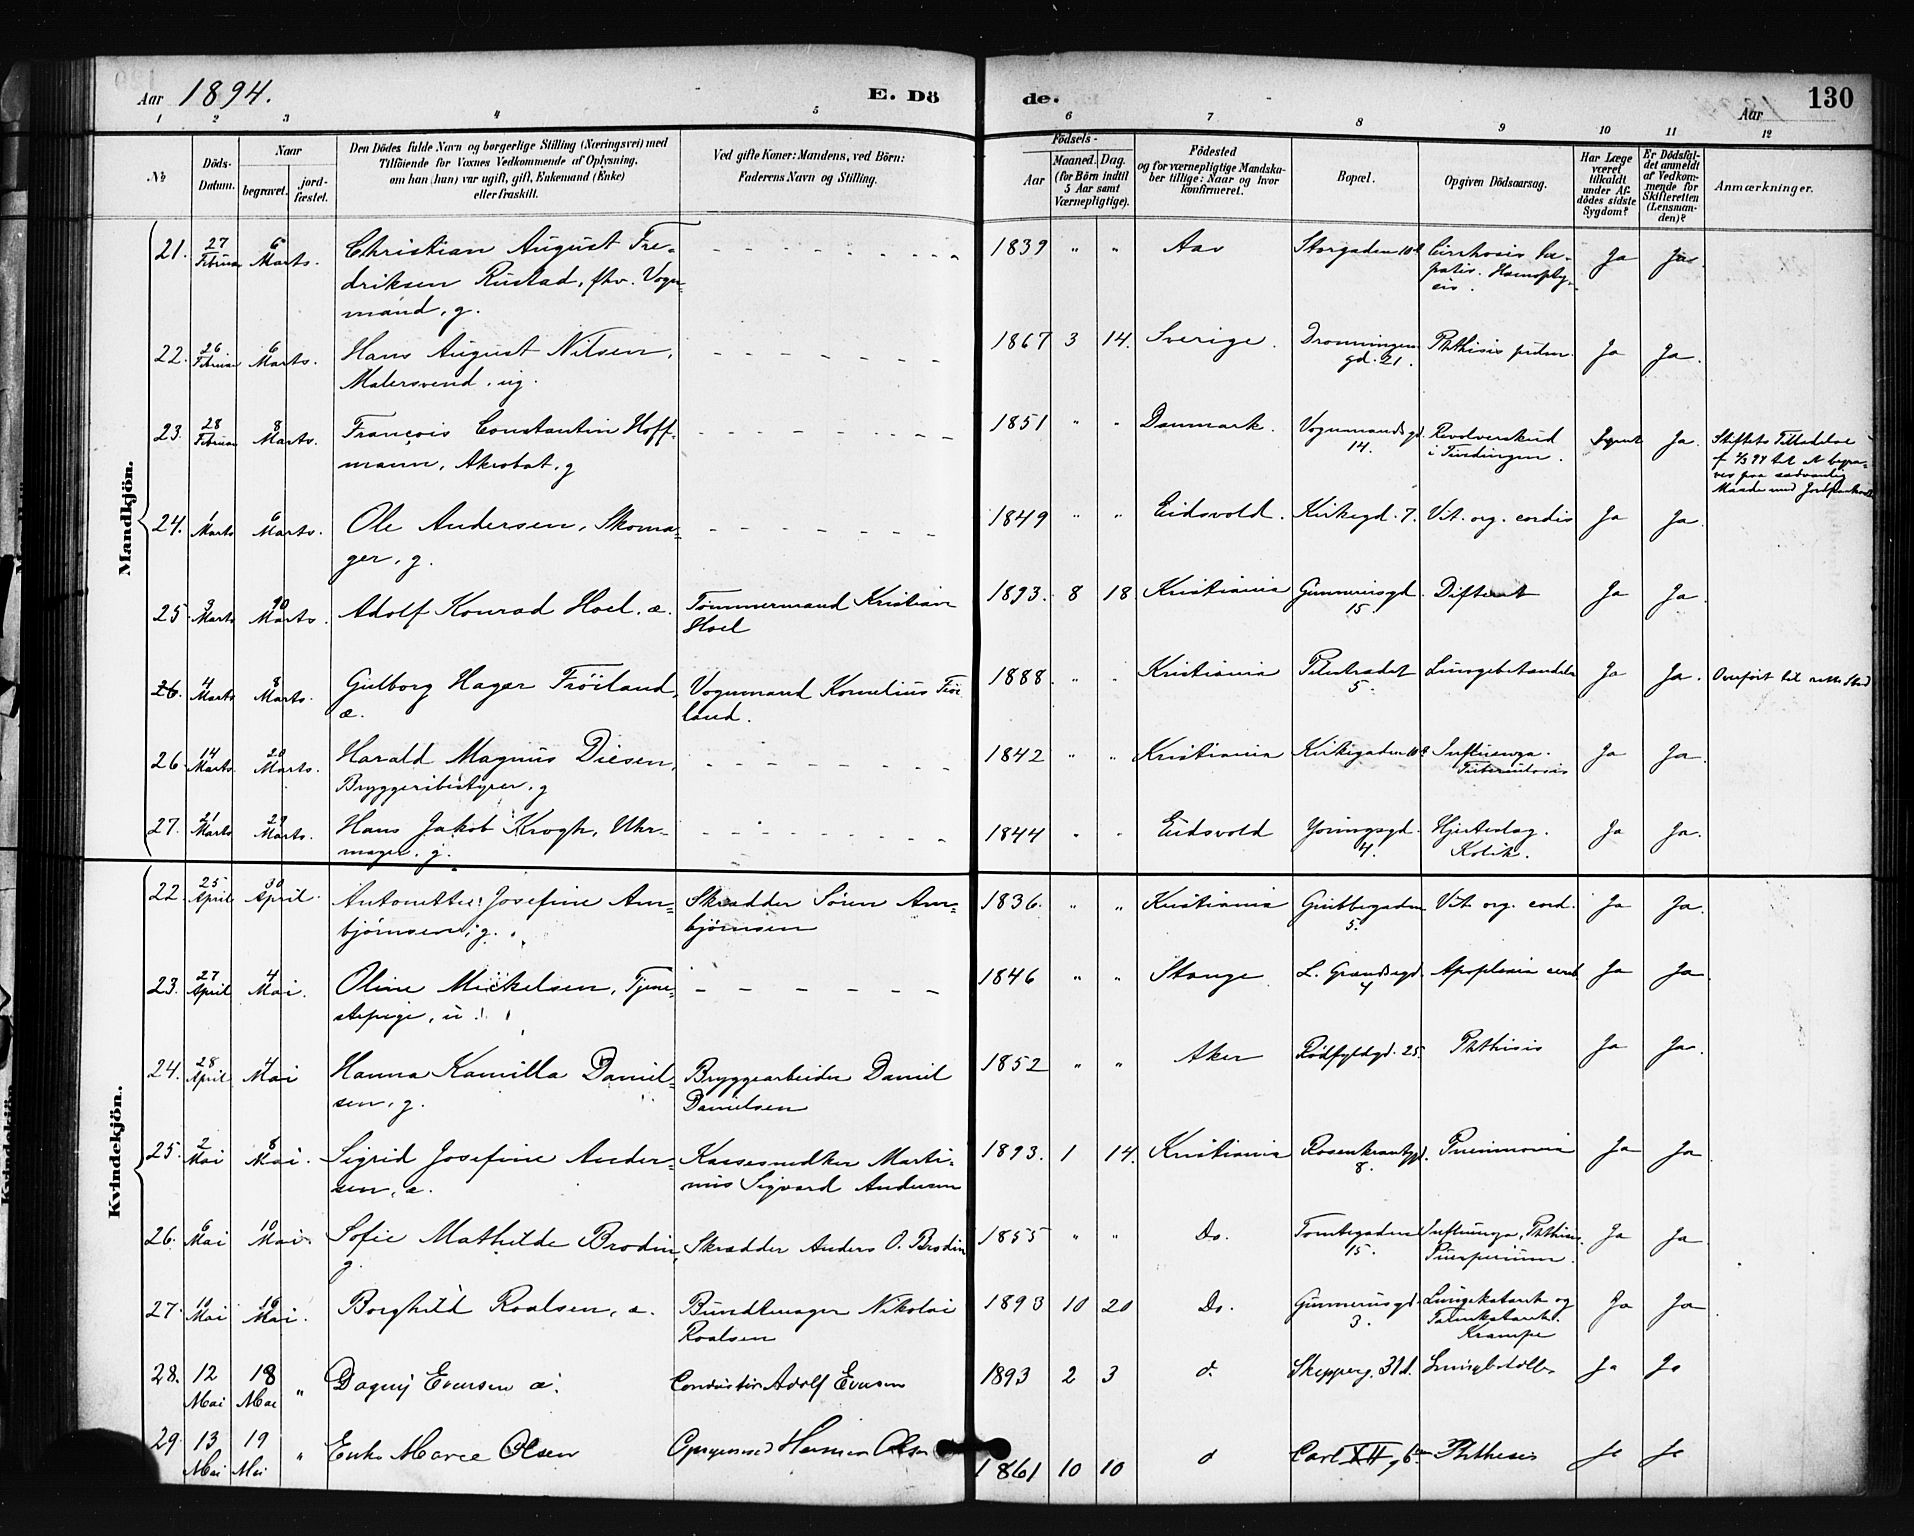 Aar 1894.
E. Dö
de.
Aar
130
1 2 3 4 5 6 7 8 9 10 11 12
No
Döds-
Datum.
Naar
begravet.
jord-
fæstet.
Den Dödes fulde Navn og borgerlige Stilling (Næringsvei) med
Tilföiende for Voxnes Vedkommende af Oplysning,
om han (hun) var ugift, gift, Enkemand (Enke)
eller fraskilt.
Ved gifte Koner: Mandens, ved Börn:
Faderens Navn og Stilling.
Födsels-
Aar
Maaned. Dag.
(for Börn indtil
5 Aar samt
Værnepligtige).
Födested
og for værnepligtige Mandska-
ber tillige: Naar og hvor
konfirmeret.
Bopæl.
Opgiven Dödsaarsag.
Har Læge
været
tilkaldt
under Af-
dödes sidste
Sygdom?
Er Dödsfal-
det anmeldt
af Vedkom-
mende for
Skifteretten
(Lensman-
den)?
Anmærkninger.
Mandkjön.
21. 27 Februar 6 Marts. Christian August Fre- 1839 " " Aas Storgaden Cirrhosis he- Ja Ja.
driksen Rustad, fhv. Vogn- patis. Hæmopty-
mand, g. sis.
22. 26 Februar 6 Marts. Hans August Nilsen, 1867 3 14. Sverige. Dronningens Phthisis pulm. Ja Ja.
Malersvend, ug. gd. 21.
23. 28 Februar 8 Marts. François Constantin Hoff- 1851 " " Danmark. Vognmandsgd. Revolverskud Ja. Stiftets Tilladelse
mann, Akrobat, g 14. i Tindingen. til at begra-
ves paa sædvanlig
Maade med
24. 1 Marts 6 Marts. Ole Andersen, Skoma- 1849 " " Eidsvold. Kirkegd. 7. Vit. org. cordis Ja Ja.
ger, g.
25. 3 Marts 10 Marts. Adolf Konrad Hoel. æ. Tømmermand Kristian 1893. 8 18 Kristiania Gunnerusgd. Difterit Ja Ja.
Hoel 15.
26. 4 Marts 8 Marts. Gulborg Hager Frøiland, Vognmand Kornelius Frøi- 1888. " " Kristiania Pilestrædet Lungebetændelse Ja Ja. Overført til rette Sted
æ. land. 5.
26 14 Marts 20 Marts. Harald Magnus Diesen, 1842 " " Kristiania Kirkegaden Influenza. Ja Ja.
Bryggeribestyrer, g Tuberculosis
27. 21 Marts 29 Marts. Hans Jakob Krogh, Uhr- 1844 " " Eidsvold Youngsgd. Hjerteslag. Ja Ja.
mager, g. 4. Kolik.
Kvindekjön.
22. 25 April 30 April. Antonette Josefine Arn- Skrædder Søren Arn- 1836. " " Kristiania Grubbegaden Vit. org. cord. Ja Ja.
bjørnsen, g. bjørnsen 5.
23. 27 April 4 Mai. Oline Mickelsen, Tjene- 1846 " " Stange. L. Grændsegd. Apoplexia cereb Ja Ja.
stepige, u. 4
24. 28 April 4 Mai Hanna Kamilla Daniel- Bryggearbeider Daniel 1852 " " Aker Rødfyldgd. 25. Phthisis Ja Ja.
sen, g. Danielsen
25. 2 Mai 8 Mai. Sigrid Josefine Ander- Kassesnedker Marti- 1893. 1 14. Kristiania Rosenkrantzgd. Pneumonia Ja Ja.
sen, æ. nus Sigvard Andersen 8.
26. 6 Mai 10 Mai. Sofie Mathilde Brodin, Skrædder Anders O. Brodin 1855 " " Do. Tomtegaden Influenza, Phthisis. Ja Ja.
g 15. Puerperium.
27. Mai Mai. Borghild Roalsen, æ. Bundtmager Nikolai 1893 10 20 Do. Gunnerusgd. Lungekatarrh og Ja Ja.
Roalsen 3. Tarmkatarrh.
Krampe
28. 12 Mai 18 Mai " Dagny Evensen æ. Conduktør Adolf Evensen 1893 2 3 d. Skipperg. 31 Ja Ja
29 13 Mai 19 Mai " Marie Olsen Herman Olsen 1861 10 10 d Carl XII g 6 Phthisis Ja Ja